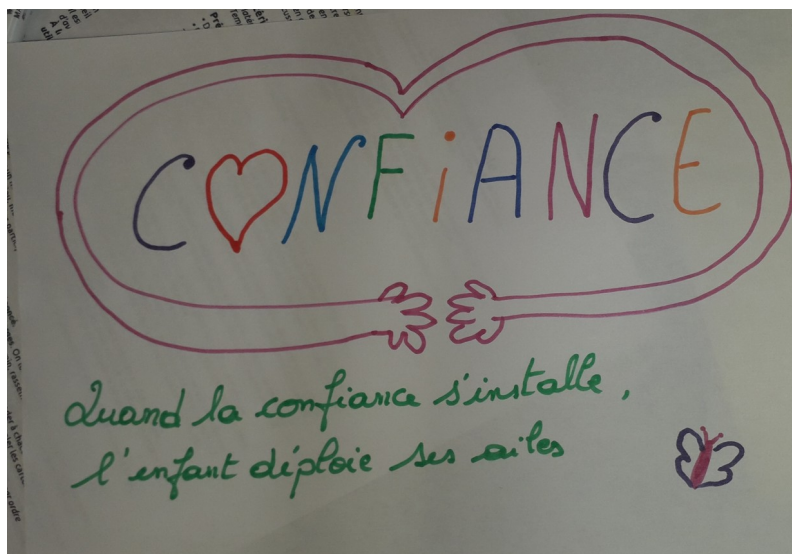 CONFiANCE
Quand la confiance s'installe,
l'enfant déploie ses ailes